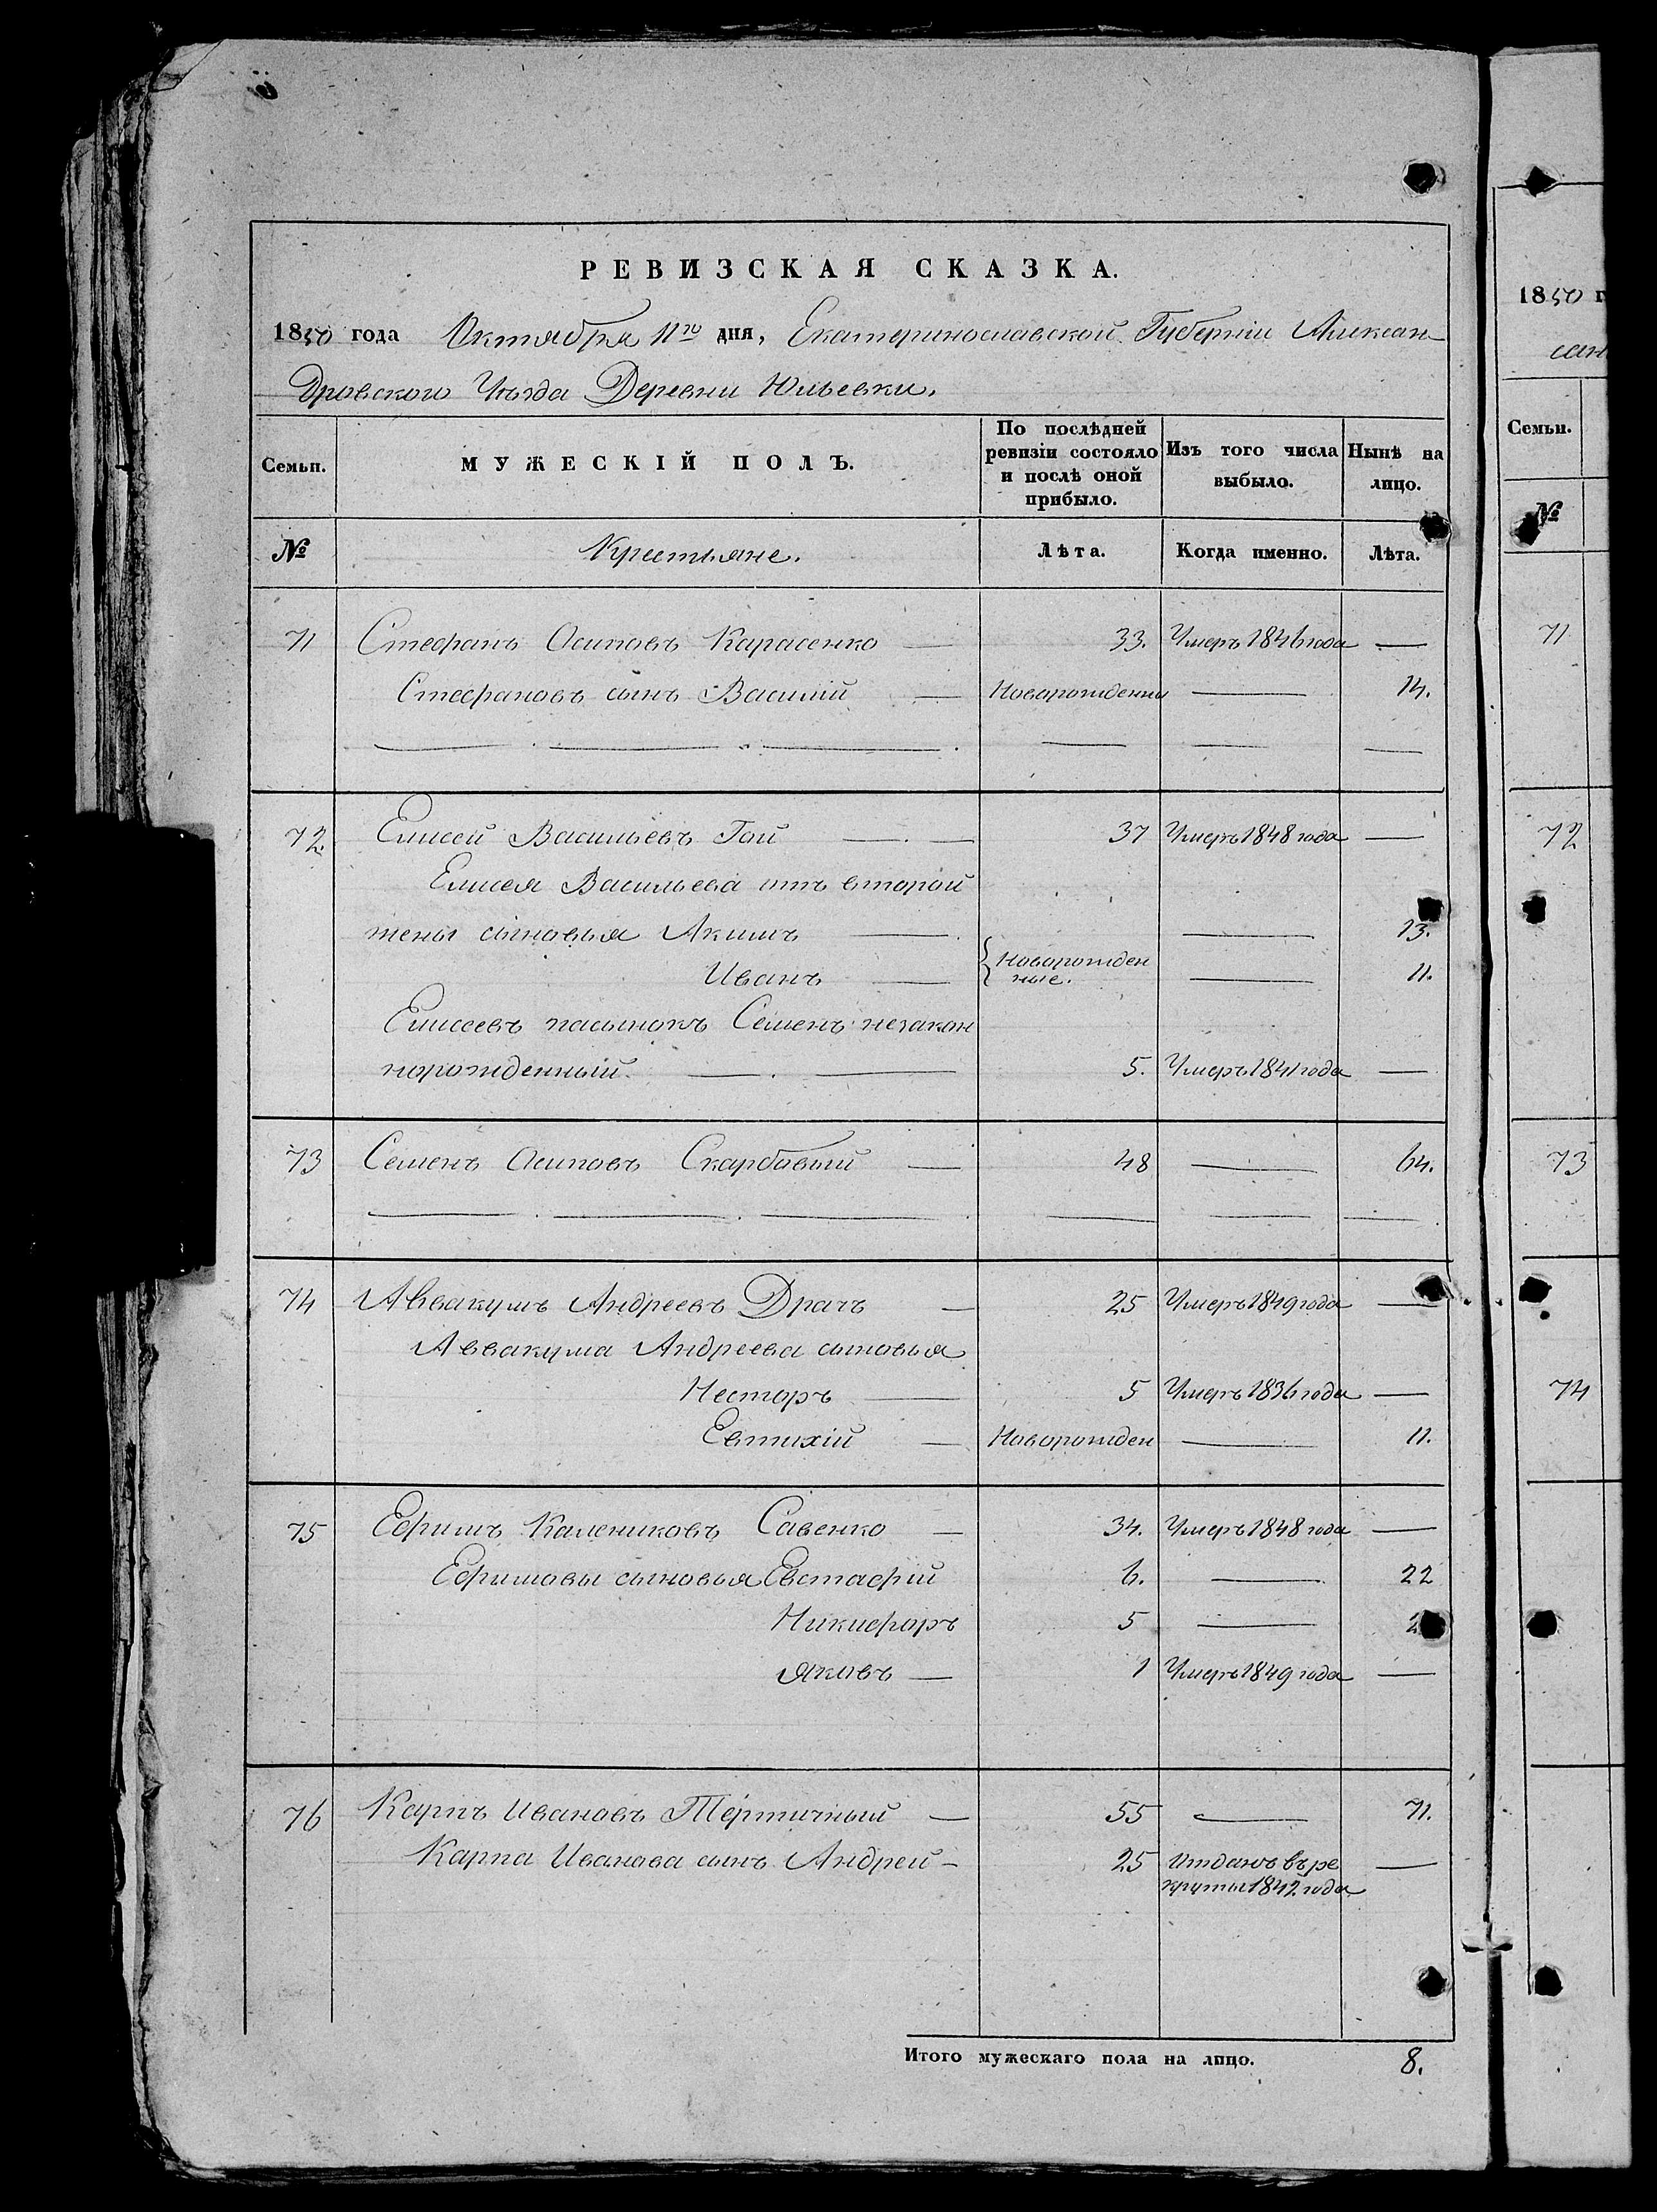 РЕВИЗСКАЯ СКАЗКА.
1850 года Октября 11го дня, Екатеринославской Губерніи Алексан-
дровского Уезда Деревни Юльевки.
Семьи. МУЖЕСКІЙ ПОЛЪ. По послѣдней ревизіи состояло и послѣ оной прибыло. Изъ того числа выбыло. Нынѣ на лицо.
№ Крестьяне. Лѣта. Когда именно. Лѣта.
71 Стефанъ Осиповъ Карасенко — 33. Умеръ 1846 года —
Стефановъ сынъ Василий — Новорожденны — 14.
72. Елисей Васильевъ Гай — 37 Умеръ 1848 года —
Елисея Васильева отъ второй
жены сыновья Акимъ — — 13.
Иванъ — {Новорожден
ные. — 11.
Елисеевъ пасынокъ Семенъ незакон
норожденный — 5. Умеръ 1841 года —
73 Семенъ Осиповъ Скарбовый — 48 — 64.
74 Аввакумъ Андреевъ Драчъ — 25 Умеръ 1849 года —
Аввакума Андреева сыновья
Несторъ — 5 Умеръ 1836 года —
Евтихій — Новорожден — 11.
75 Ефимъ Калениковъ Савенко — 34. Умеръ 1848 года —
Ефимовы сыновья Евстафій 6. — 22
Никифоръ 5 — 2
Яковъ — 1 Умеръ 1849 года —
76 Карпъ Ивановъ Тертичный — 55 — 71.
Карпа Иванова сынъ Андрей — 25 Отданъ въ ре
круты 1842 года —
Итого мужескаго пола на лицо. 8.
1850 г
сан
Семьи.
№
71
72
73
74